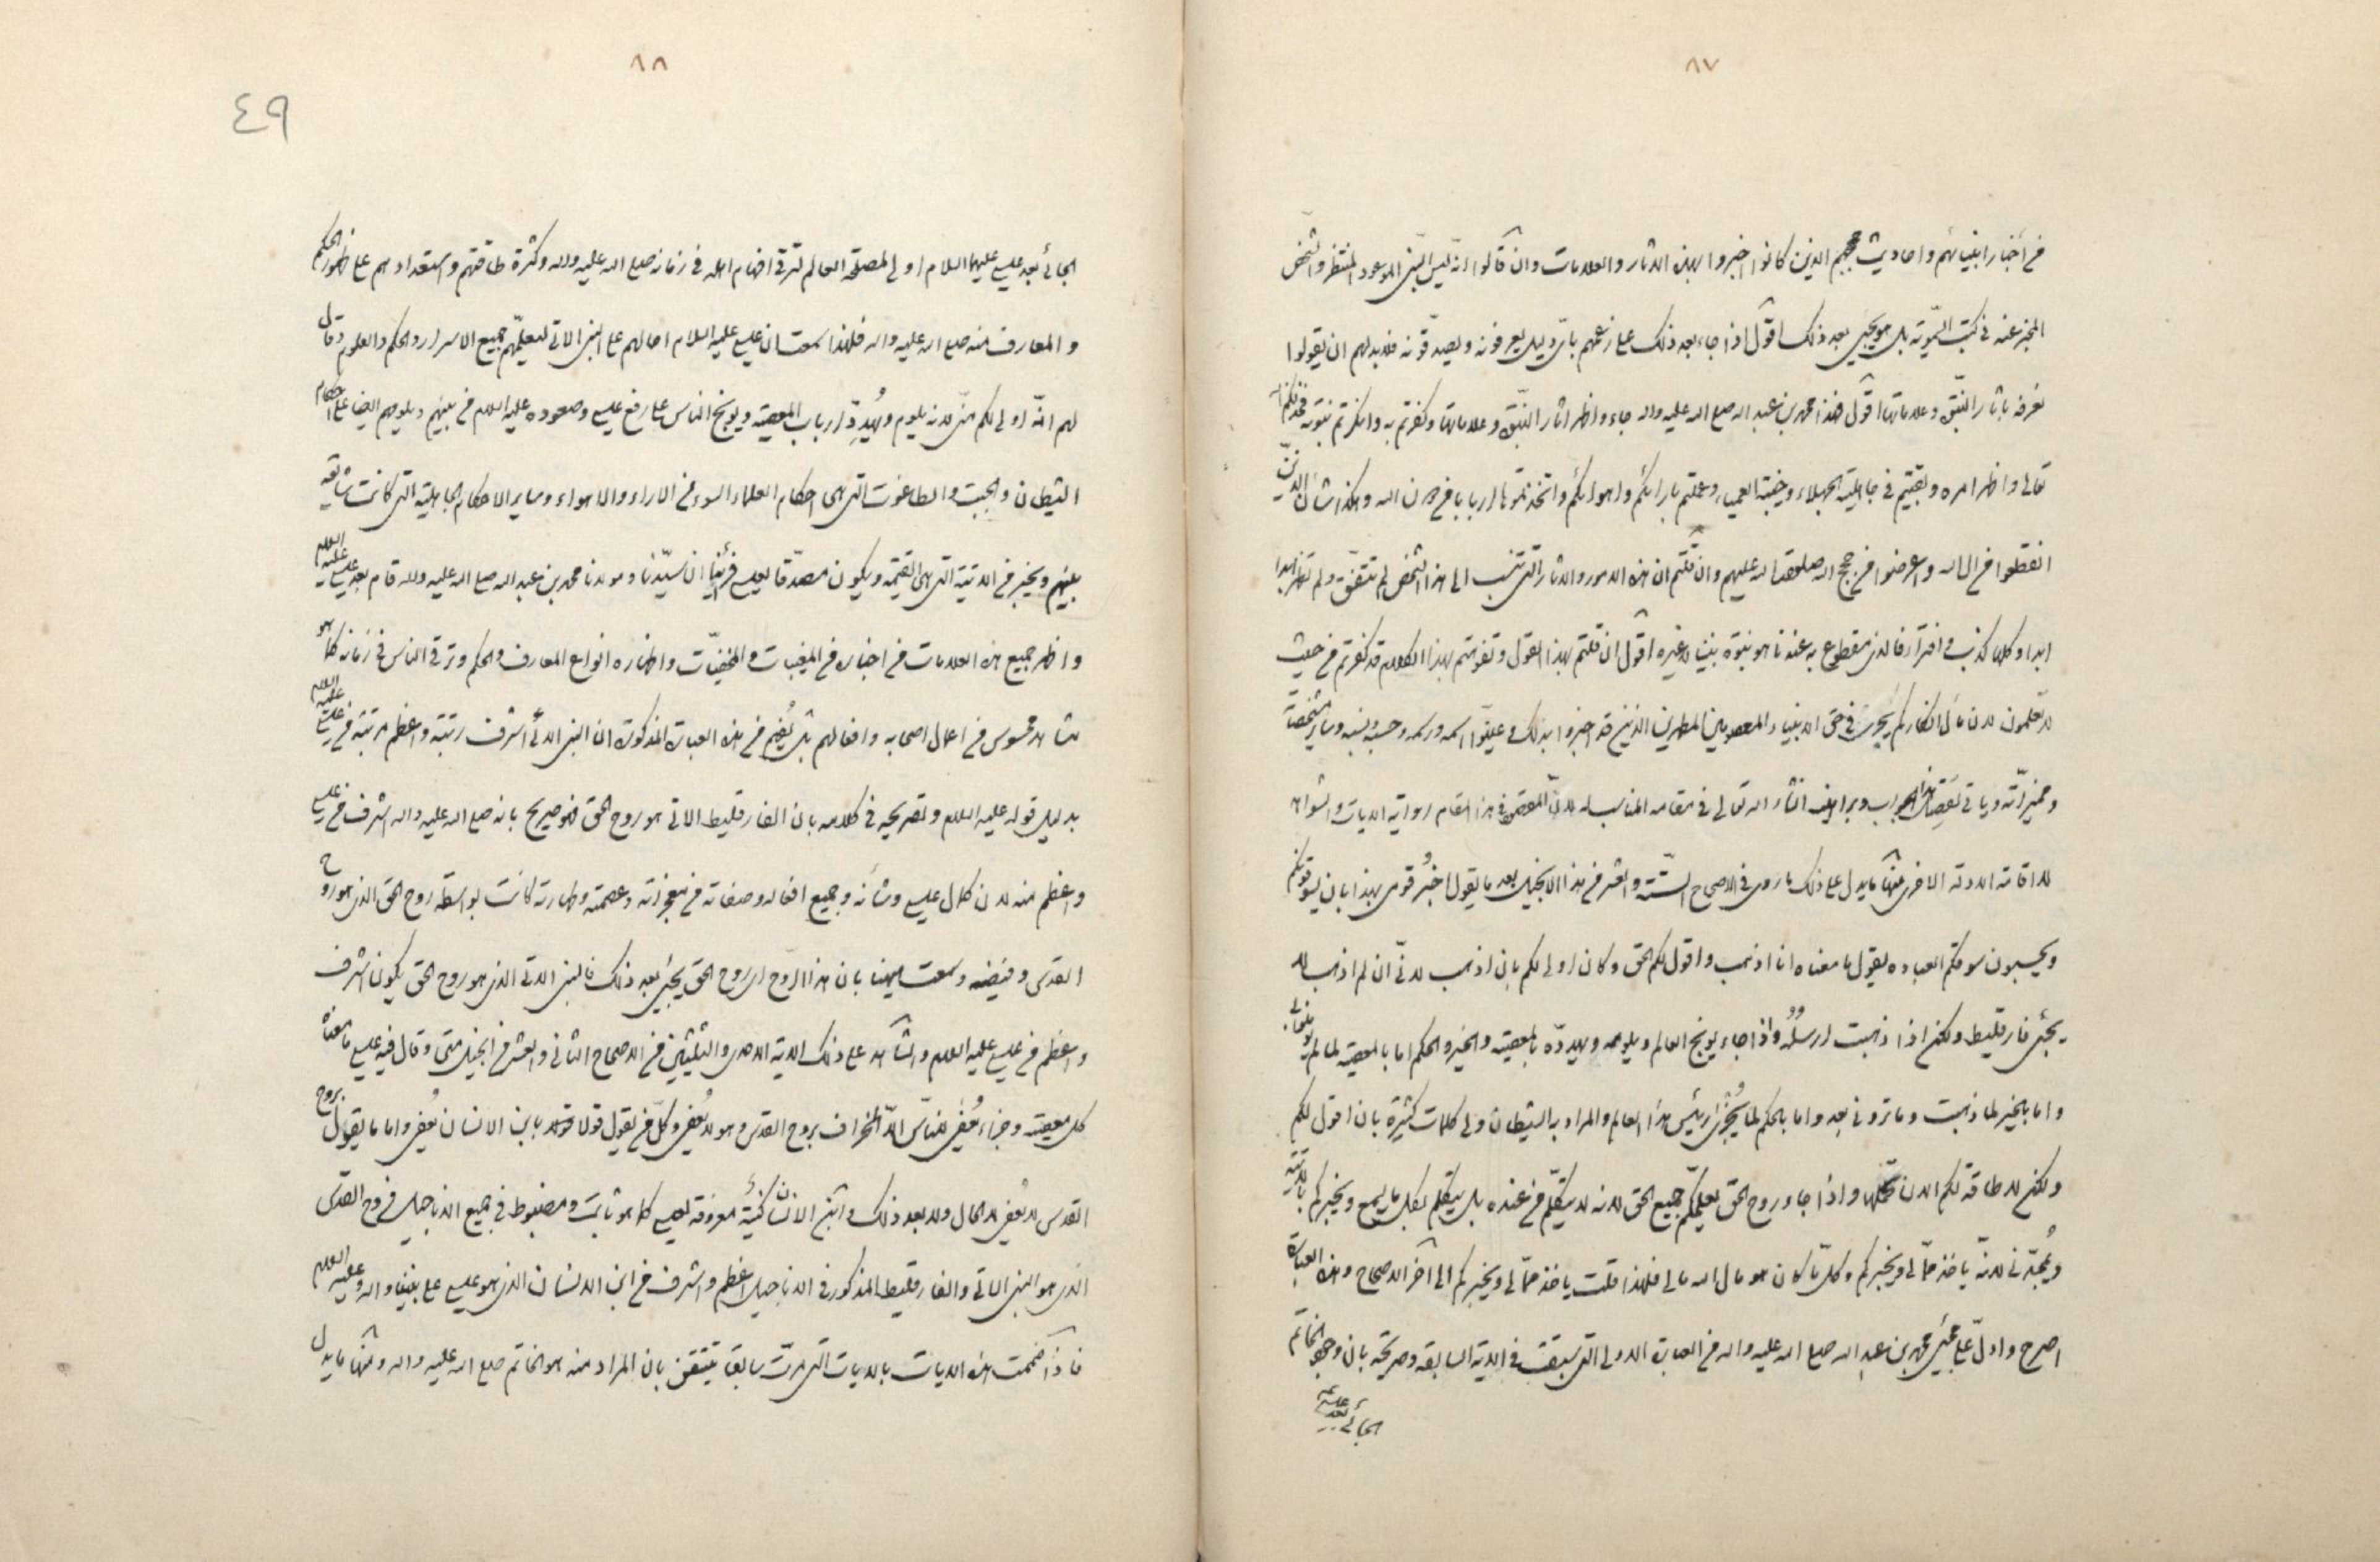 ٨٧
من أخبار أنبيائهم وأحاديث حججهم الذين كانوا اخبروا بهذه الآثار والعلامات وان قالوا انه ليس النبي الموعود المنتظر والشخص
المخبر عنه في كتب السموية بل هو يجيء بعد ذلك اقول اذا جاء بعد ذلك على زعمهم بأي دليل يعرفونه ويصدقونه فلابد لهم ان يقولوا
نعرفه بآثار النبوة وعلاماتها اقول هذا محمد بن عبد الله صلى الله عليه واله جاء واظهر اثار النبوة وعلاماتها وكفرتم به وانكرتم نبوته
تعالى واظهر امره وبقيتم في جاهلية الجهلاء وعملتم بارائكم واهوائكم واتخذتموها اربابا من دون الله وهكذا شأن الذين
انقطعوا من الله واعرضوا من حجج الله صلوات الله عليهم وان قلتم ان هذه الامور والاثار التي تنسب الى هذا الشخص لم تتفق ولم تظهر ابدا
ابدا وكلها كذب وافتراء فالذي مقطوع به عندنا هو نبوة نبينا لا غيره اقول ان قلتم بهذا القول وتفوهتم بهذا الكلام قد كفرتم من حيث
لا تعلمون لان مآل انكاركم يجري في حق الانبياء المعصومين المطهرين الذين قد اخبروا بذلك وعينوا اسمه ورسمه وحسبه ونسبه وساير مشخصاته
ومميزاته وياتي تفصيل هذا الجواب وبراهينه انشاء الله تعالى في مقامه المناسب له لان المقصود في هذا المقام رواية الايات والشواهد
لا اقامة الادلة الاخرى منها ما يدل على ذلك ما روى في الاصحاح الستة والعشر من هذا الانجيل بعد ما يقول اخبر قومي بهذا بان يسوقونكم
ويحسبون سوقكم العبادة يقول ما معناه انا اذهب واقول لكم الحق وكان اولى لكم بان اذهب لاني ان لم اذهب لا
يجئ فارقليط ولكن اذا ذهبت ارسله واذا جاء يوبخ العالم ويلومه ويهدده بالمعصية والخير والحكم اما بالمعصية لما لم يؤمنوا بي
واما بالخير لما ذهبت وما تروني بعد واما بالحكم لما يجزى رئيس هذا العالم والمراد به الشيطان ولي كلمات كثيرة بان اقول لكم
ولكن لا طاقة لكم الان تحملها واذا جاء روح الحق يعلمكم جميع الحق لانه لا يتكلم من عنده بل يتكلم بكل ما يسمع ويخبركم بالآتية
ويمجدني لانه ياخذ مما لي ويخبركم وكل ما كان هو مال الله مالي فلهذا قلت ياخذ مما لي ويخبركم الى آخر الاصحاح وهذه العبارة
اصرح وادل على مجئ محمد بن عبد الله صلى الله عليه واله من العبارة الاولى التي سبقت في الاية السابقة وصريحة بان وجود الخاتم
الجائي بعد عيسى
٨٨
٤٩
الجائي بعد عيسى عليهما السلام اولى لمصلحة العالم لترقي افهام اهله في زمانه صلى الله عليه واله وكثرة طاقتهم واستعدادهم على ظهور الحكم
والمعارف منه صلى الله عليه واله فلهذا سمعت ان عيسى عليه السلام احالهم على النبي الاتي لتعليمهم جميع الاسرار والحكم والعلوم وقال
لهم انه اولى لكم مني لانه يلوم ويهدد ارباب المعصية ويوبخ الناس على رفع عيسى وصعوده عليه السلام من بينهم ويلومهم ايضا على احكام
الشيطان والجبت والطاغوت التي هي احكام العلماء السوء من الاراء والاهواء وساير الاحكام الجاهلية التي كانت شايعة
بينهم ويخبر من الآتية التي هي القيمة ويكون مصدقا لعيسى فرأينا ان سيدنا ومولانا محمد بن عبد الله صلى الله عليه واله قام بعد عيسى عليه السلام
واظهر جميع هذه العلامات من اخباره من المغيبات والمخفيات واظهاره انواع المعارف والحكم وترقي الناس في زمانه كما هو
مشاهد محسوس من اعمال اصحابه وافعالهم بل يفهم من هذه العبارة المذكورة ان النبي الاتي اشرف رتبة واعظم مرتبة من عيسى عليه السلام
بدليل قوله عليه السلام وتصريحه في كلامه بان الفارقليط الاتي هو روح الحق فهو صريح بانه صلى الله عليه واله اشرف من عيسى
واعظم منه لان كمال عيسى وشأنه وجميع افعاله وصفاته من معجزته وعصمته وطهارته كانت بواسطة روح الحق الذي هو روح
القدس وفيضه وسمعت ههنا بان هذا الروح اي روح الحق يجئ بعد ذلك فالنبي الاتي الذي هو روح الحق يكون اشرف
واعظم من عيسى عليه السلام والشاهد على ذلك الاية الاحدى والثلثين من الاصحاح الثاني والعشر من انجيل متى وقال فيه عيسى ما معناه
كل معصية وجزاء يغفر للناس الا انحراف بروح القدس وهو لا يغفر وكل من يقول قولا بابن الانسان يغفر واما ما يقول بروح
القدس لا يغفر لا الحال ولا بعد ذلك وابن الانسان كنية معروفة لعيسى كما هو ثابت ومضبوط في جميع الاناجيل فروح القدس
الذي هو النبي الاتي والفارقليط المذكور في الاناجيل اعظم واشرف من ابن الانسان الذي هو عيسى على نبينا واله وعليه السلام
فاذا ضممت هذه الايات بالايات التي مرت سابقا تيقن بان المراد منه هو الخاتم صلى الله عليه واله ومنها ما يدل